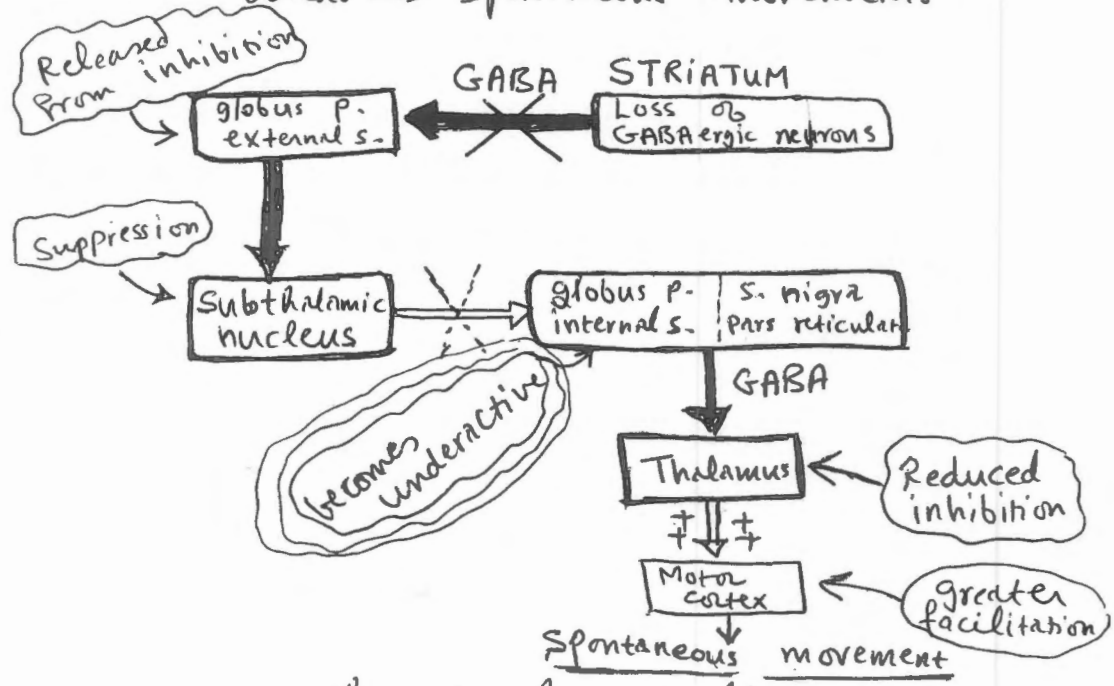 Spontaneous movements
Released
from inhibition
GABA
STRIATUM
globus p.
external s.
Loss of
GABAergic neurons
Suppression
Subthalamic
nucleus
globus p.
internal s.
s. nigra
pars reticulat
becomes
underactive
GABA
Thalamus
Reduced
inhibition
++ ++
Motor
cortex
greater
facilitation
Spontaneous movement